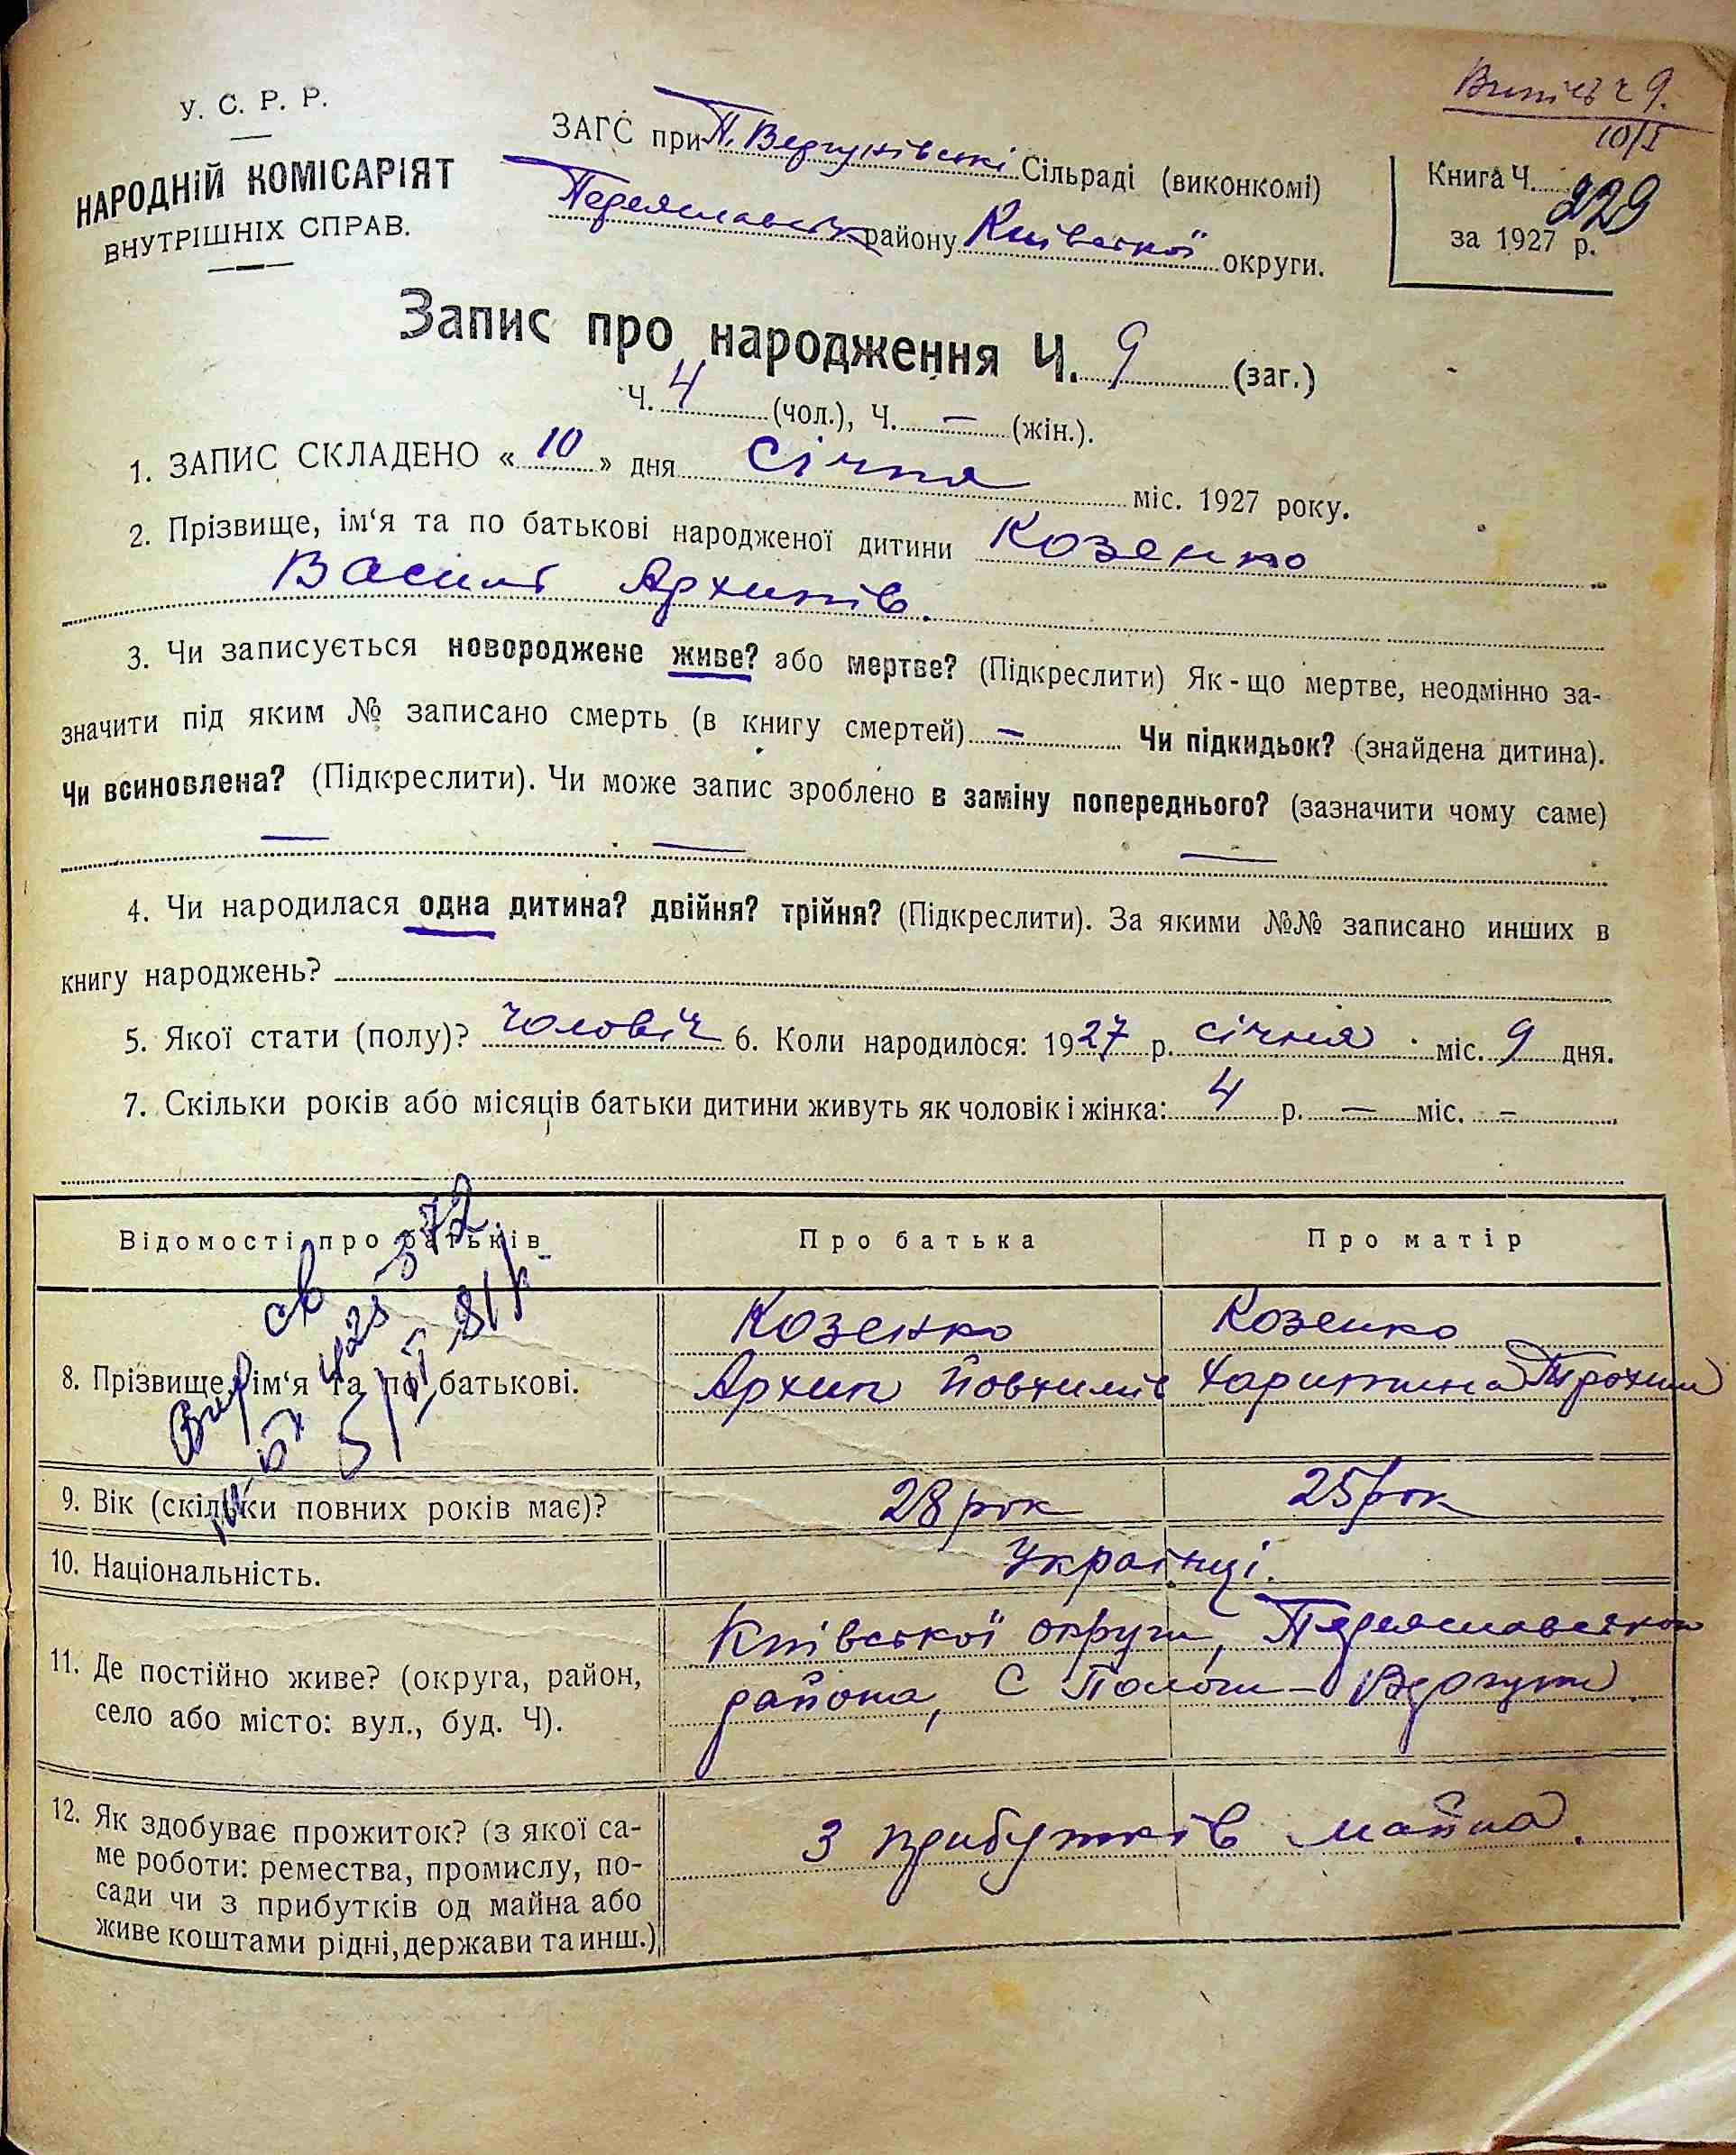 Випись ч 9.
10/I
У. С. Р. Р.
НАРОДНІЙ КОМІСАРІЯТ
ВНУТРІШНІХ СПРАВ.
ЗАГС при П. Вергунівські Сільраді (виконкомі)
Переяславськ району Київської округи.
Книга Ч. 229
за 1927 р.
Запис про народження Ч. 9 (заг.)
Ч. 4 (чол.), Ч. — (жін.).
1. ЗАПИС СКЛАДЕНО « 10 » дня січня міс. 1927 року.
2. Прізвище, ім‘я та по батькові народженої дитини Козенко
Василь Архипів.
3. Чи записується новороджене живе? або мертве? (Підкреслити) Як-що мертве, неодмінно за-
значити під яким № записано смерть (в книгу смертей) — Чи підкидьок? (знайдена дитина).
Чи всиновлена? (Підкреслити). Чи може запис зроблено в заміну попереднього? (зазначити чому саме)
— — —
4. Чи народилася одна дитина? двійня? трійня? (Підкреслити). За якими №№ записано инших в
книгу народжень?
5. Якої стати (полу)? чоловіч 6. Коли народилося: 1927 р. січня міс. 9 дня.
7. Скільки років або місяців батьки дитини живуть як чоловік і жінка: 4 р. — міс. —
Відомості про батьків Про батька Про матір
8. Прізвище, ім‘я та по батькові.
Козенко Козенко
Архип Йовхимів Харитина Трохим
9. Вік (скільки повних років має)? 28 рок 25 рок
10. Національність. Українці.
11. Де постійно живе? (округа, район,
село або місто: вул., буд. Ч).
Київської округи, Переяславського
района, С Полого – Вергуни
12. Як здобуває прожиток? (з якої са-
ме роботи: ремества, промислу, по-
сади чи з прибутків од майна або
живе коштами рідні, держави та инш.)
З прибутків майна.